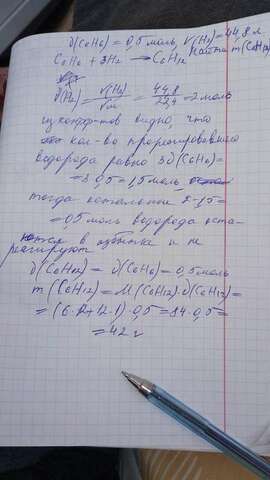 ϑ(C6H6) = 0,5 моль, V(H2) = 44,8 л
Найти m(C6H12)
C6H6 + 3H2 → C6H12
ϑ(H2) = V(H2)/Vm = 44,8/22,4 = 2 моль
из коэфф-тов видно, что
кол-во прореагировавшего
водорода равно 3ϑ(C6H6) =
= 3·0,5 = 1,5 моль,
тогда остальное 2-1,5 =
= 0,5 моль водорода оста-
ются в избытке и не
реагируют
ϑ(C6H12) = ϑ(C6H6) = 0,5 моль
m(C6H12) = M(C6H12)·ϑ(C6H12) =
= (6·12+12·1)·0,5 = 84·0,5 =
= 42 г